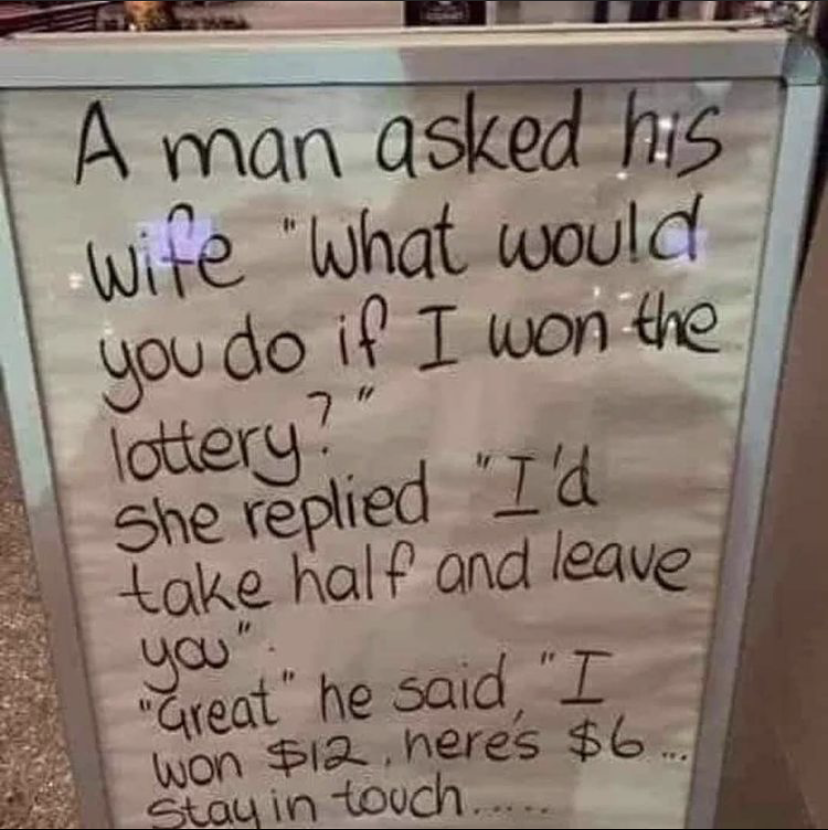 A man asked his
wife "What would
you do if I won the
lottery?"
She replied "I'd
take half and leave
you".
"Great" he said, "I
won $12, heres $6...
Stay in touch.....